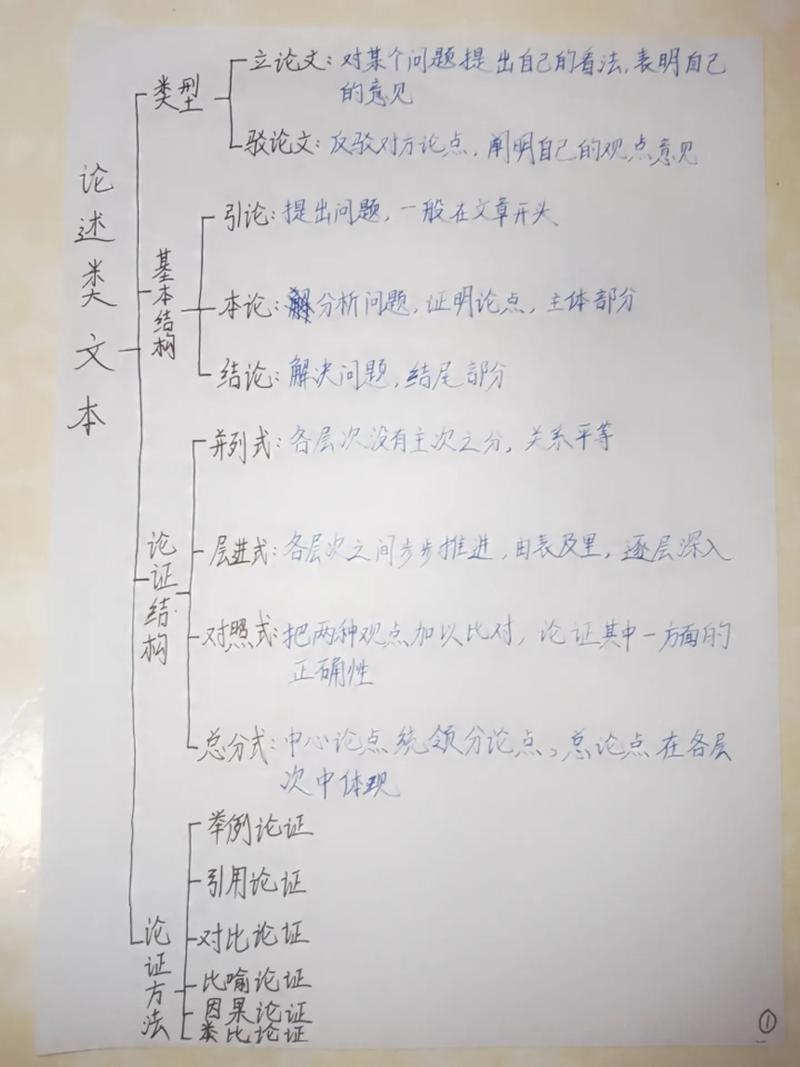 论述类文本
类型
立论文：对某个问题提出自己的看法，表明自己
的意见
驳论文：反驳对方论点，阐明自己的观点意见
基本结构
引论：提出问题，一般在文章开头
本论：分析问题，证明论点，主体部分
结论：解决问题，结尾部分
论证结构
并列式：各层次没有主次之分，关系平等
层进式：各层次之间步步推进，由表及里，逐层深入
对照式：把两种观点加以比对，论证其中一方面的
正确性
总分式：中心论点统领分论点，总论点在各层
次中体现
论证方法
举例论证
引用论证
对比论证
比喻论证
因果论证
类比论证
①